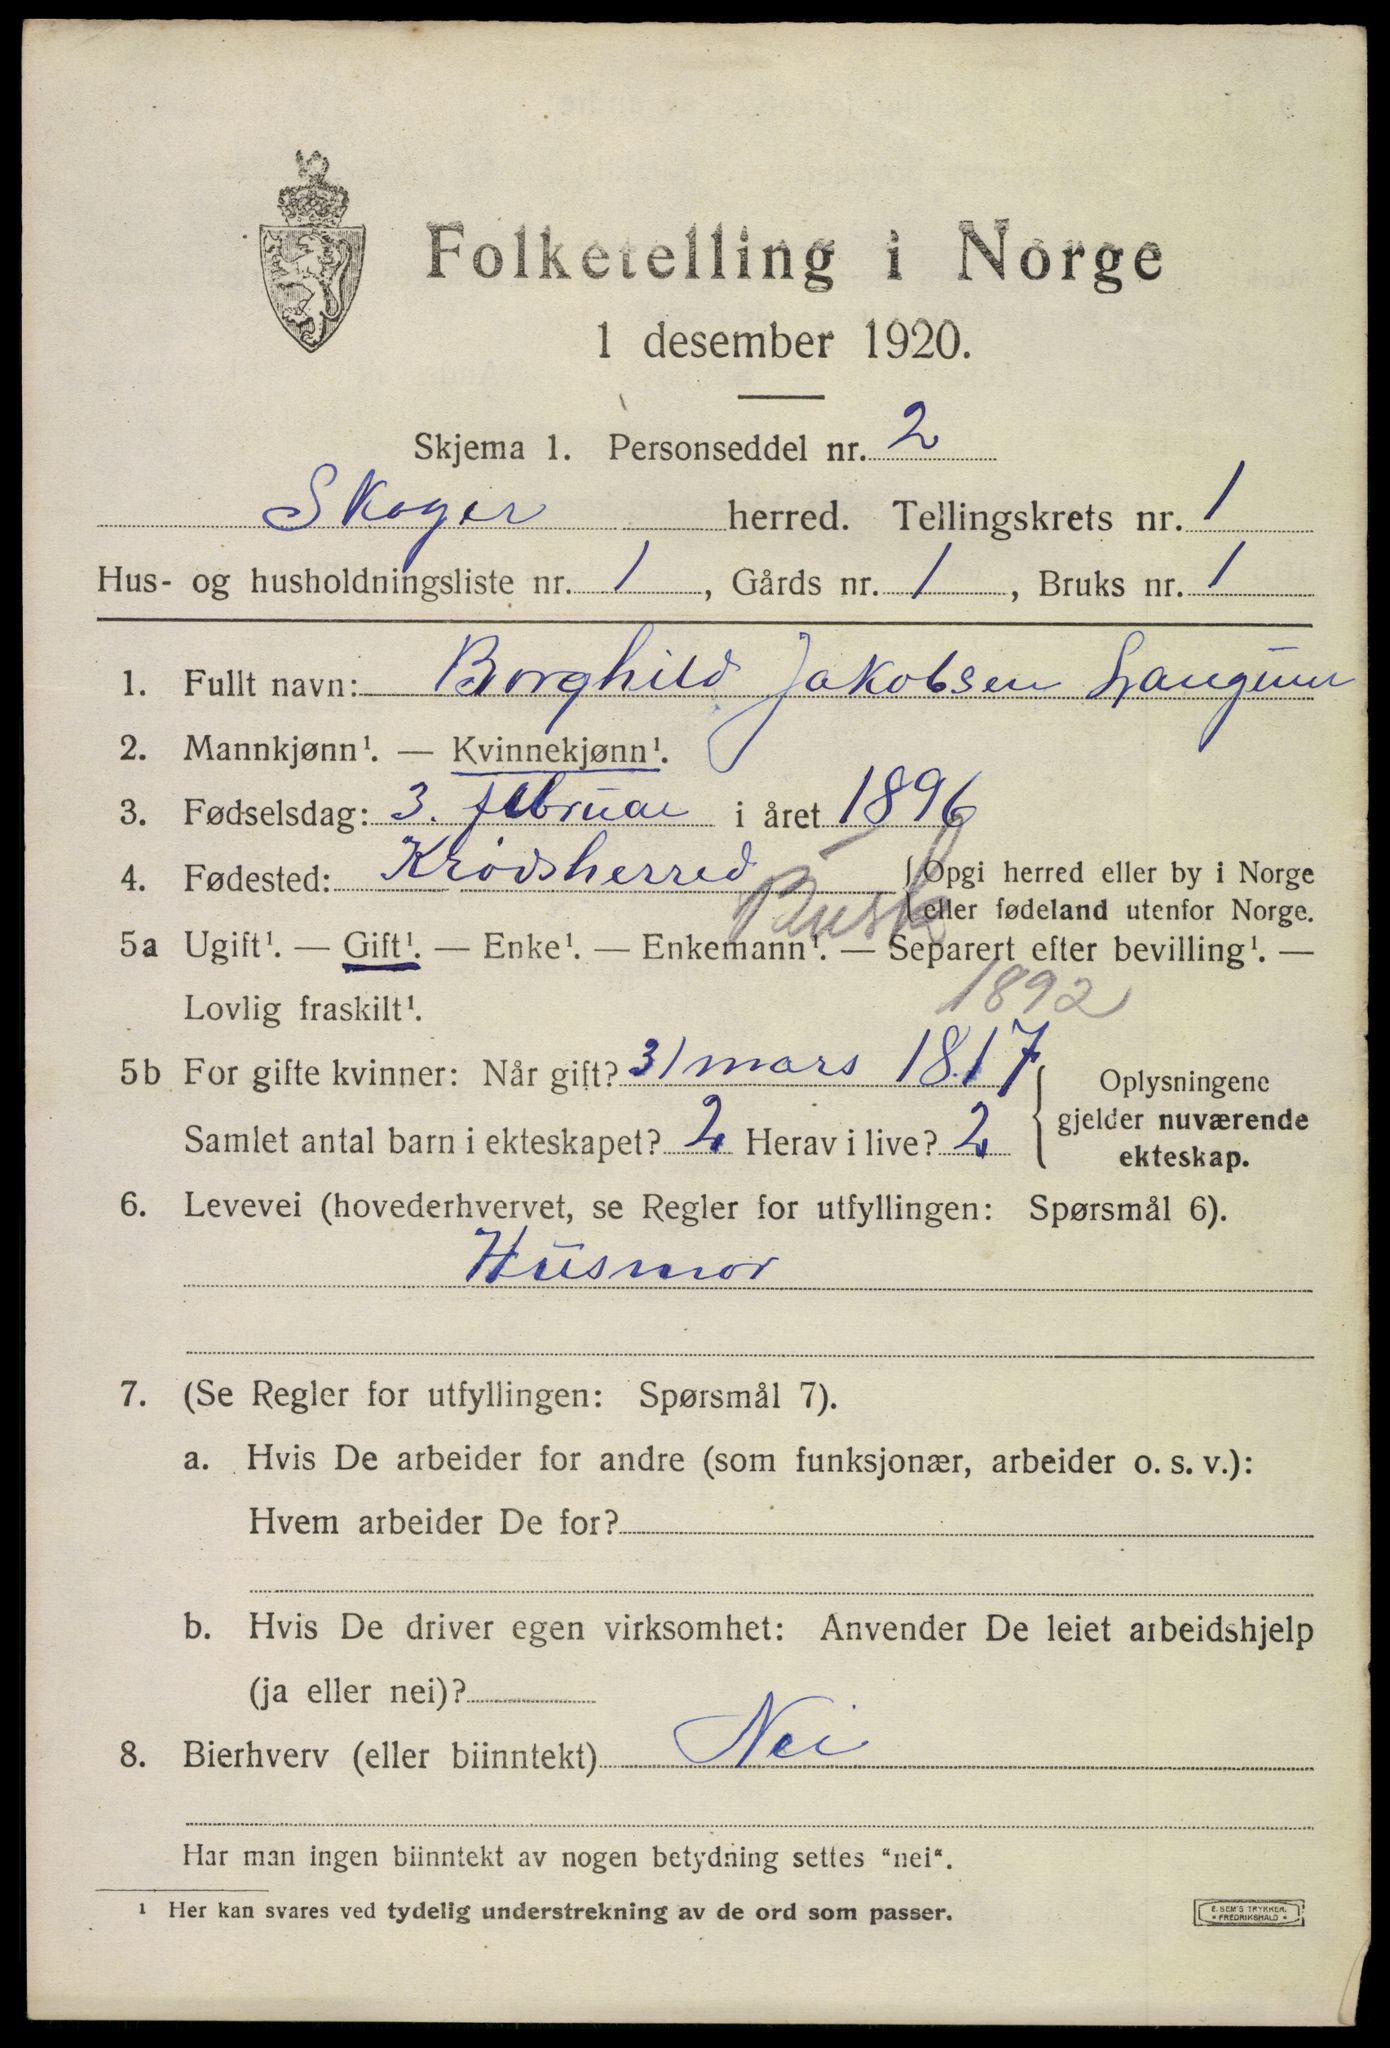 Folketelling i Norge
1 desember 1920.
Skjema 1. Personseddel nr. 2
Skoger herred. Tellingskrets nr. 1
Hus- og husholdningsliste nr. 1, Gårds nr. 1, Bruks nr. 1
1. Fullt navn: Borghild Jakobsen
2. Mannkjønn¹. — Kvinnekjønn¹.
3. Fødselsdag: 3. februar i året 1896
4. Fødested: Krødsherred {Opgi herred eller by i Norge
eller fødeland utenfor Norge.
Busk
5a Ugift¹. — Gift¹. — Enke¹. — Enkemann¹. — Separert efter bevilling¹. —
Lovlig fraskilt¹.
1892
5b For gifte kvinner: Når gift? 31 mars 1817
Samlet antal barn i ekteskapet? 2 Herav i live? 2
{Oplysningene
gjelder nuværende
ekteskap.
6. Levevei (hovederhvervet, se Regler for utfyllingen: Spørsmål 6).
Husmor
7. (Se Regler for utfyllingen: Spørsmål 7).
a. Hvis De arbeider for andre (som funksjonær, arbeider o. s. v.):
Hvem arbeider De for?
b. Hvis De driver egen virksomhet: Anvender De leiet arbeidshjelp
(ja eller nei)?
8. Bierhverv (eller biinntekt) Nei
Har man ingen biinntekt av nogen betydning settes "nei".
¹ Her kan svares ved tydelig understrekning av de ord som passer.
E. SEM'S TRYKKER.
• FREDRIKSHALD •